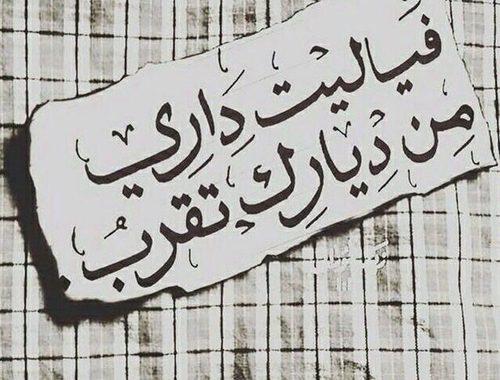 فياليت دَارِي
مِن دِيارِكِ تقربُ